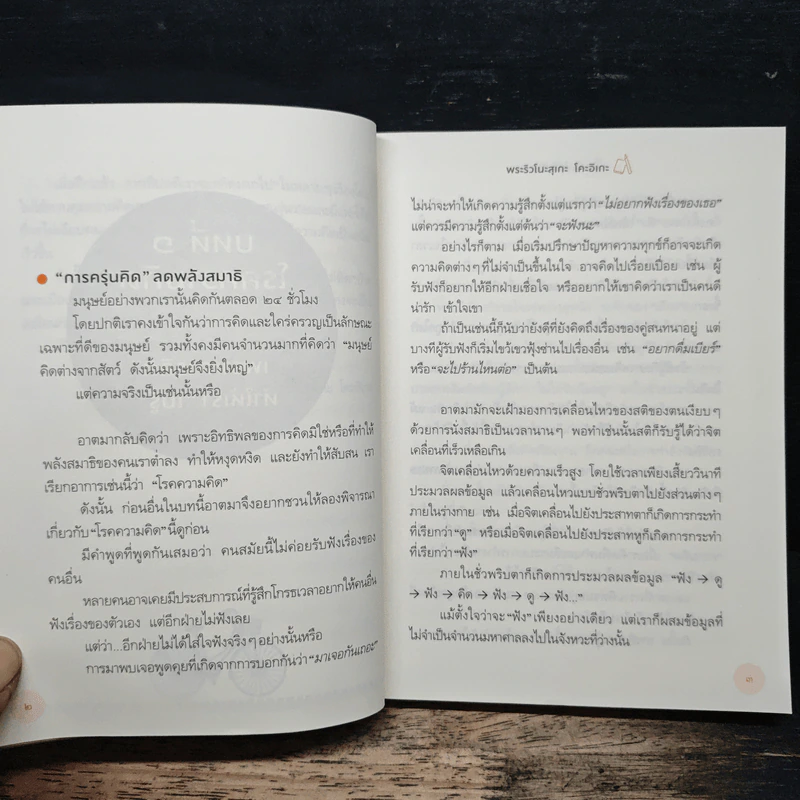 “การครุ่นคิด” ลดพลังสมาธิ
มนุษย์อย่างพวกเรานั้นคิดกันตลอด ๒๔ ชั่วโมง
โดยปกติเราคงเข้าใจกันว่าการคิดและใคร่ครวญเป็นลักษณะ
เฉพาะที่ดีของมนุษย์ รวมทั้งคงมีคนจำนวนมากที่คิดว่า “มนุษย์
คิดต่างจากสัตว์ ดังนั้นมนุษย์จึงยิ่งใหญ่”
แต่ความจริงเป็นเช่นนั้นหรือ
อาตมากลับคิดว่า เพราะอิทธิพลของการคิดมิใช่หรือที่ทำให้
พลังสมาธิของคนเราต่ำลง ทำให้หงุดหงิด และยังทำให้สับสน เรา
เรียกอาการเช่นนี้ว่า “โรคความคิด”
ดังนั้น ก่อนอื่นในบทนี้อาตมาจึงอยากชวนให้ลองพิจารณา
เกี่ยวกับ“โรคความคิด”นี้ดูก่อน
มีคำพูดที่พูดกันเสมอว่า คนสมัยนี้ไม่ค่อยรับฟังเรื่องของ
คนอื่น
หลายคนอาจเคยมีประสบการณ์ที่รู้สึกโกรธเวลาอยากให้คนอื่น
ฟังเรื่องของตัวเอง แต่อีกฝ่ายไม่ฟังเลย
แต่ว่า...อีกฝ่ายไม่ได้ใส่ใจฟังจริงๆอย่างนั้นหรือ
การมาพบเจอพูดคุยที่เกิดจากการบอกกันว่า“มาเจอกันเถอะ”
๒
พระริวโนะสุเกะ โคะอิเกะ
ไม่น่าจะทำให้เกิดความรู้สึกตั้งแต่แรกว่า“ไม่อยากฟังเรื่องของเธอ”
แต่ควรมีความรู้สึกตั้งแต่ต้นว่า“จะฟังนะ”
อย่างไรก็ตาม เมื่อเริ่มปรึกษาปัญหาความทุกข์ก็อาจจะเกิด
ความคิดต่างๆที่ไม่จำเป็นขึ้นในใจ อาจคิดไปเรื่อยเปื่อย เช่น ผู้
รับฟังก็อยากให้อีกฝ่ายเชื่อใจ หรืออยากให้เขาคิดว่าเราเป็นคนดี
น่ารัก เข้าใจเขา
ถ้าเป็นเช่นนี้ก็นับว่ายังดีที่ยังคิดถึงเรื่องของคู่สนทนาอยู่ แต่
บางทีผู้รับฟังก็เริ่มไขว้เขวฟุ้งซ่านไปเรื่องอื่น เช่น “อยากดื่มเบียร์”
หรือ“จะไปร้านไหนต่อ” เป็นต้น
อาตมามักจะเฝ้ามองการเคลื่อนไหวของสติของตนเงียบๆ
ด้วยการนั่งสมาธิเป็นเวลานานๆ พอทำเช่นนั้นสติก็รับรู้ได้ว่าจิต
เคลื่อนที่เร็วเหลือเกิน
จิตเคลื่อนไหวด้วยความเร็วสูง โดยใช้เวลาเพียงเสี้ยววินาที
ประมวลผลข้อมูล แล้วเคลื่อนไหวแบบชั่วพริบตาไปยังส่วนต่างๆ
ภายในร่างกาย เช่น เมื่อจิตเคลื่อนไปยังประสาทตาก็เกิดการกระทำ
ที่เรียกว่า“ดู” หรือเมื่อจิตเคลื่อนไปยังประสาทหูก็เกิดการกระทำ
ที่เรียกว่า“ฟัง”
ภายในชั่วพริบตาก็เกิดการประมวลผลข้อมูล “ฟัง → ดู
→ ฟัง → คิด → ฟัง → ดู → ฟัง...”
แม้ตั้งใจว่าจะ“ฟัง”เพียงอย่างเดียว แต่เราก็ผสมข้อมูลที่
ไม่จำเป็นจำนวนมหาศาลลงไปในจังหวะที่ว่างนั้น
๓